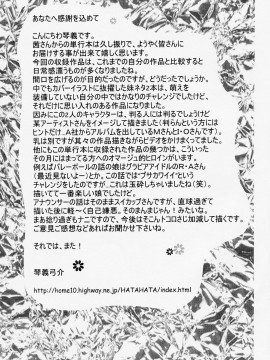 あなたへ感謝を込めて
こんにちわ琴義です。
茜さんからの単行本は久し振りで、ようやく皆さんに
お届けする事が出来て嬉しく思います。
今回の収録作品は、これまでの自分の作品と比較すると
日常感漂うものが多いと思います。
間口を広げるのが目的だったのですが、どうだったでしょうか。
中でもカバーイラストに抜擢した妹ネタ2本は、萌えを
装備していない自分の中ではかなりのチャレンジでしたけど、
それだけに思い入れのある作品になりました。
因みにこの2人のキャラクターは、判る人には判るでしょうけど
某アーティストさんをイメージして描きました(判らんという方には
ヒントだけ…A社からアルバムを出しているMさんとI・Oさんです)。
乳は別ですが其々の作品描きながらビデオをかけまくってました。
他にもこの単行本に収録された作品の幾つかは、こういった
その月にはまってる人へのオマージュ的ヒロインがいます。
例えば、バレーボールの話の娘はグラビアアイドルのR・Aさん
(最近見ないよー)とか。この話では"ブサカワイイ"という
チャレンジをしたのですが…これは玉砕しちゃいましたね(笑)。
描いてて一番楽しい娘でしたけど。
アナウンサーの話ではそのまんまスイカップさんですが、直球過ぎて
描いた後に軽〜く自己嫌悪。そのまんまじゃん!みたいな。
まあ捻り過ぎもナニですので、今後はそこんトコロさじ加減して描くです。
ご意見ご感想などあればお聞かせ下さい。
それでは、また!
琴義弓介
http://home10.highway.ne.jp/HATAHATA/index.html